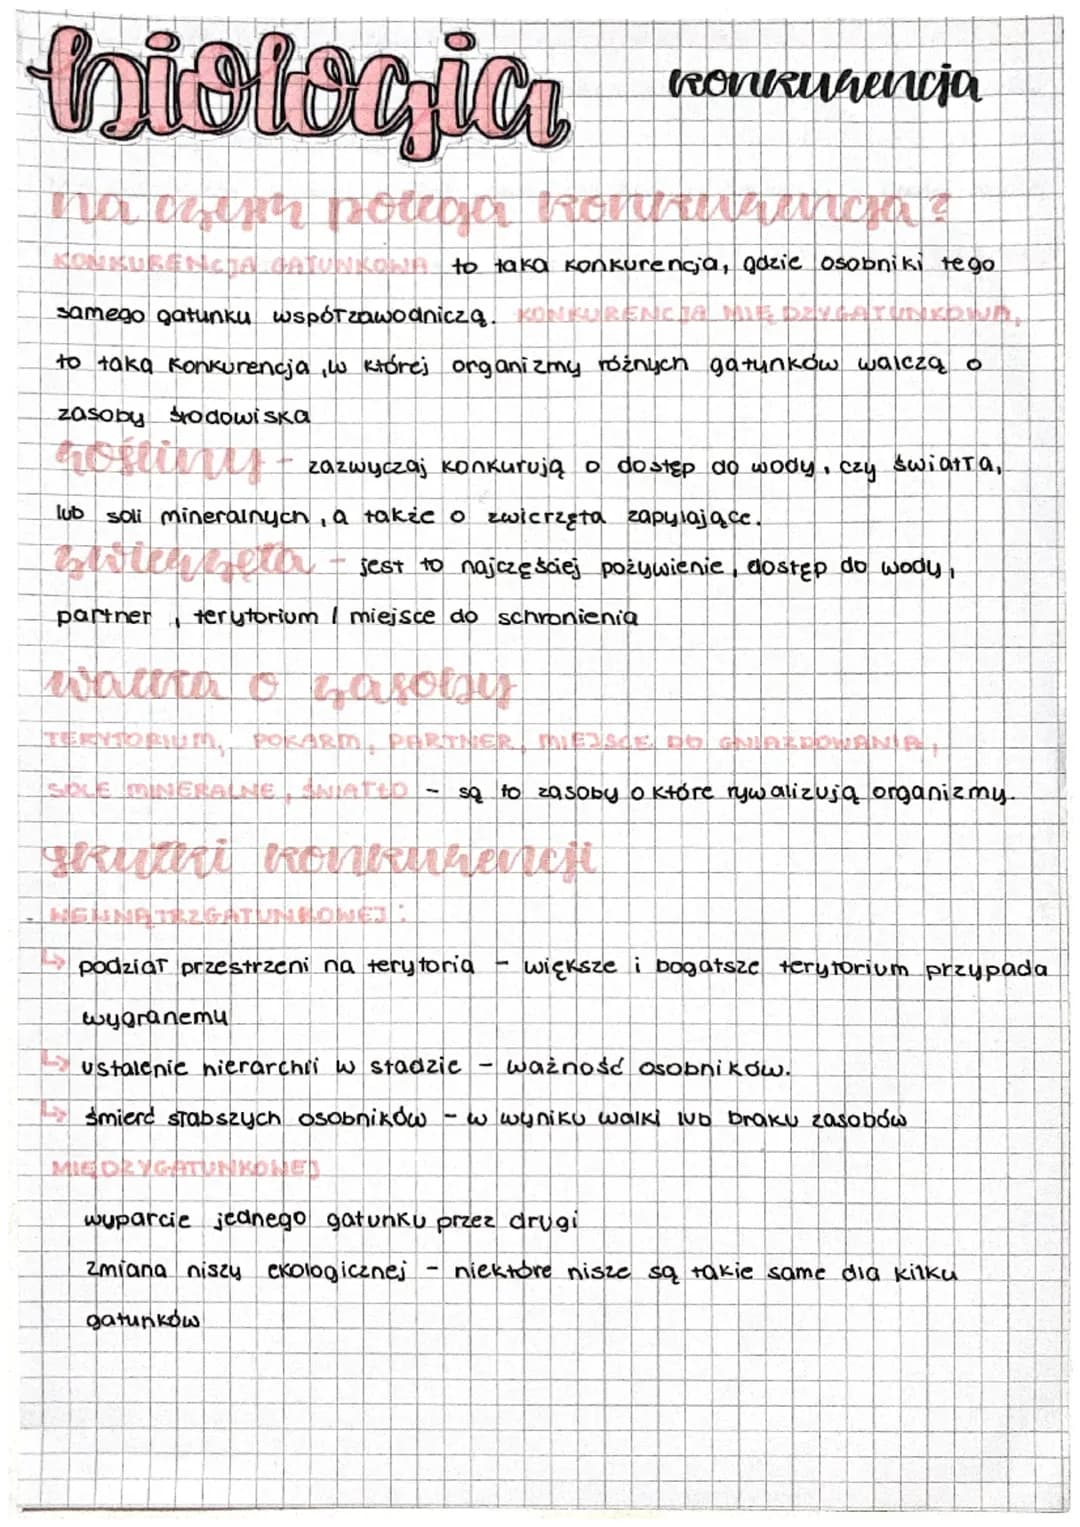 biologia
konkurencja
na czym polega konkurencja?
KONKURENCJA GATUNKOWA to taka konkurencja, gdzie osobniki tego
samego gatunku współzawodniczą. KONKURENCJA MIĘDZYGATUNKOWA,
to taka konkurencja, w której organizmy różnych gatunków walczą o
zasoby środowiska
rośliny - zazwyczaj konkurują o dostęp do wody, czy światła,
lub soli mineralnych, a także o zwierzęta zapylające.
zwierzęta - jest to najczęściej pożywienie, dostęp do wody,
partner, terytorium / miejsce do schronienia
walka o zasoby
TERYTORIUM, POKARM, PARTNER, MIEJSCE DO GNIAZDOWANIA,
SOLE MINERALNE, ŚWIATŁO - są to zasoby o które rywalizują organizmy.
skutki konkurencji
- WEWNĄTRZGATUNKOWEJ:
↳ podział przestrzeni na terytoria - większe i bogatsze terytorium przypada
wygranemu
↳ ustalenie hierarchii w stadzie - ważność osobników.
↳ śmierć słabszych osobników - w wyniku walki lub braku zasobów
MIĘDZYGATUNKOWEJ
wyparcie jednego gatunku przez drugi
zmiana niszy ekologicznej - niektóre nisze są takie same dla kilku
gatunków